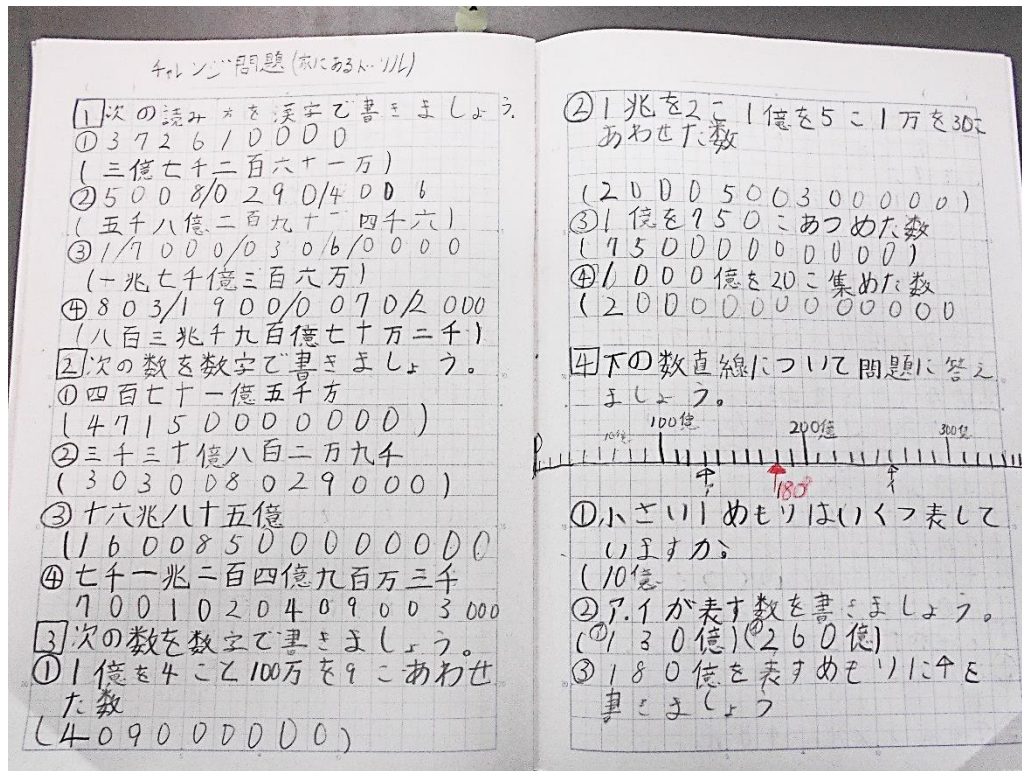 チャレンジ問題(家にあるドリル)
1 次の読み方を漢字で書きましょう。
① 372610000
(三億七千二百六十一万)
② 5008/0290/4006
(五千八億二百九十 四千六)
③ 1/7000/0306/0000
(一兆七千億三百六万)
④ 803/1900/0070/2000
(八百三兆千九百億七十万二千)
2 次の数を数字で書きましょう。
① 四百七十一億五千万
(47150000000)
② 三千三十億八百二万九千
(303008029000)
③ 十六兆/八十五億
(16008500000000)
④ 七千一兆二百四億九百万三千
7001020409003000
3 次の数を数字で書きましょう。
① 1億を4こと100万を9こあわせ
た数
(409000000)
② 1兆を2こ 1億を5こ 1万を30こ
あわせた数
(2000500300000)
③ 1億を750こあつめた数
(75000000000)
④ 1000億を20こ集めた数
(20000000000000
4 下の数直線について問題に答え
ましょう。
0 10億 100億 200億 300億
ア 180 イ
① 小さい1めもりはいくつ表して
いますか。
(10億
② ア.イが表す数を書きましょう。
(㋐130億)(㋑260億)
③ 180億を表すめもりに↑を
書きましょう